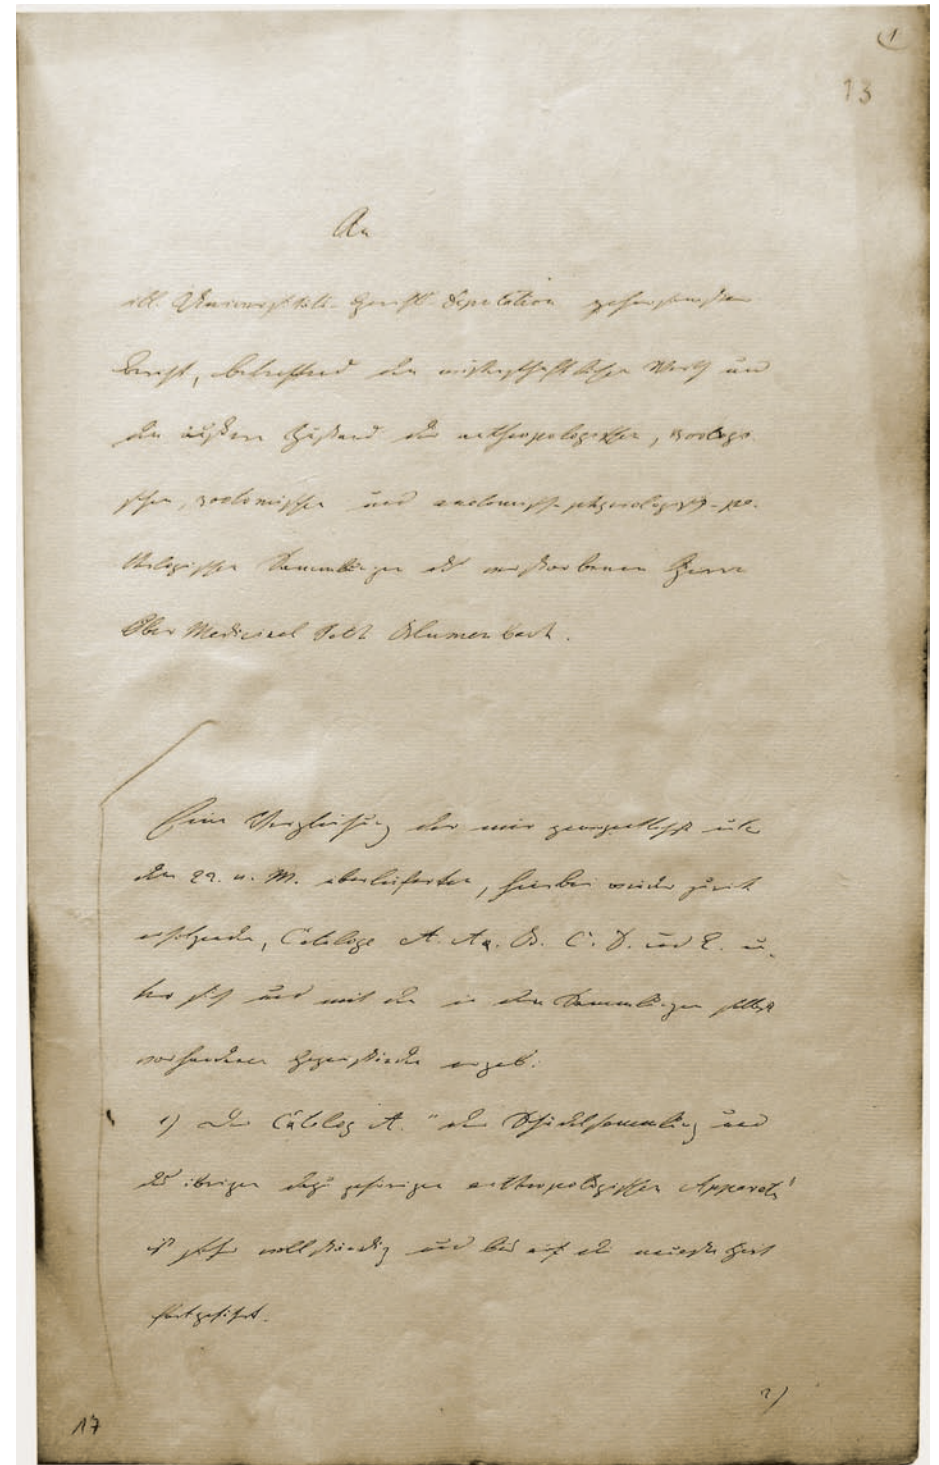 1
13
An
Universitäts-Gerichts-Deputation gehorsamster
Bericht, betreffend den wissenschaftlichen Werth und
den äußern Zustand der anthropologischen, zoologi-
schen, zootomischen und anatomisch-physiologisch-pa-
thologischen Sammlungen des verstorbenen Herrn
Ober Medicinal Rath Blumenbach.
Eine Vergleichung der mir hochgeneigtest unter
den 22. v. M. überlieferten, hierbei wieder zurück
erfolgenden, Cataloge A. Aa. B. C. D. und E. un-
ter sich und mit den in den Sammlungen selbst
vorhandenen Gegenständen ergab:
1) Der Catalog A. "der Schädelsammlung und
des übrigen dazu gehörigen anthropologischen Apparats"
ist sehr vollständig und bis auf die neueste Zeit
fortgeführt.
2)
17